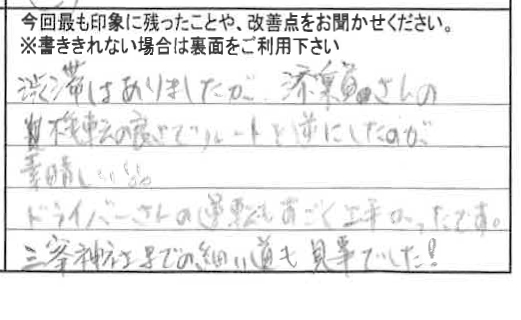 今回最も印象に残ったことや、改善点をお聞かせください。
※書ききれない場合は裏面をご利用下さい
渋滞はありましたが、添乗員さんの
機転の良さでルートを逆にしたのが
素晴しい
ドライバーさんの運転もすごく上手かったです。
三峯神社までの細い道も見事でした!